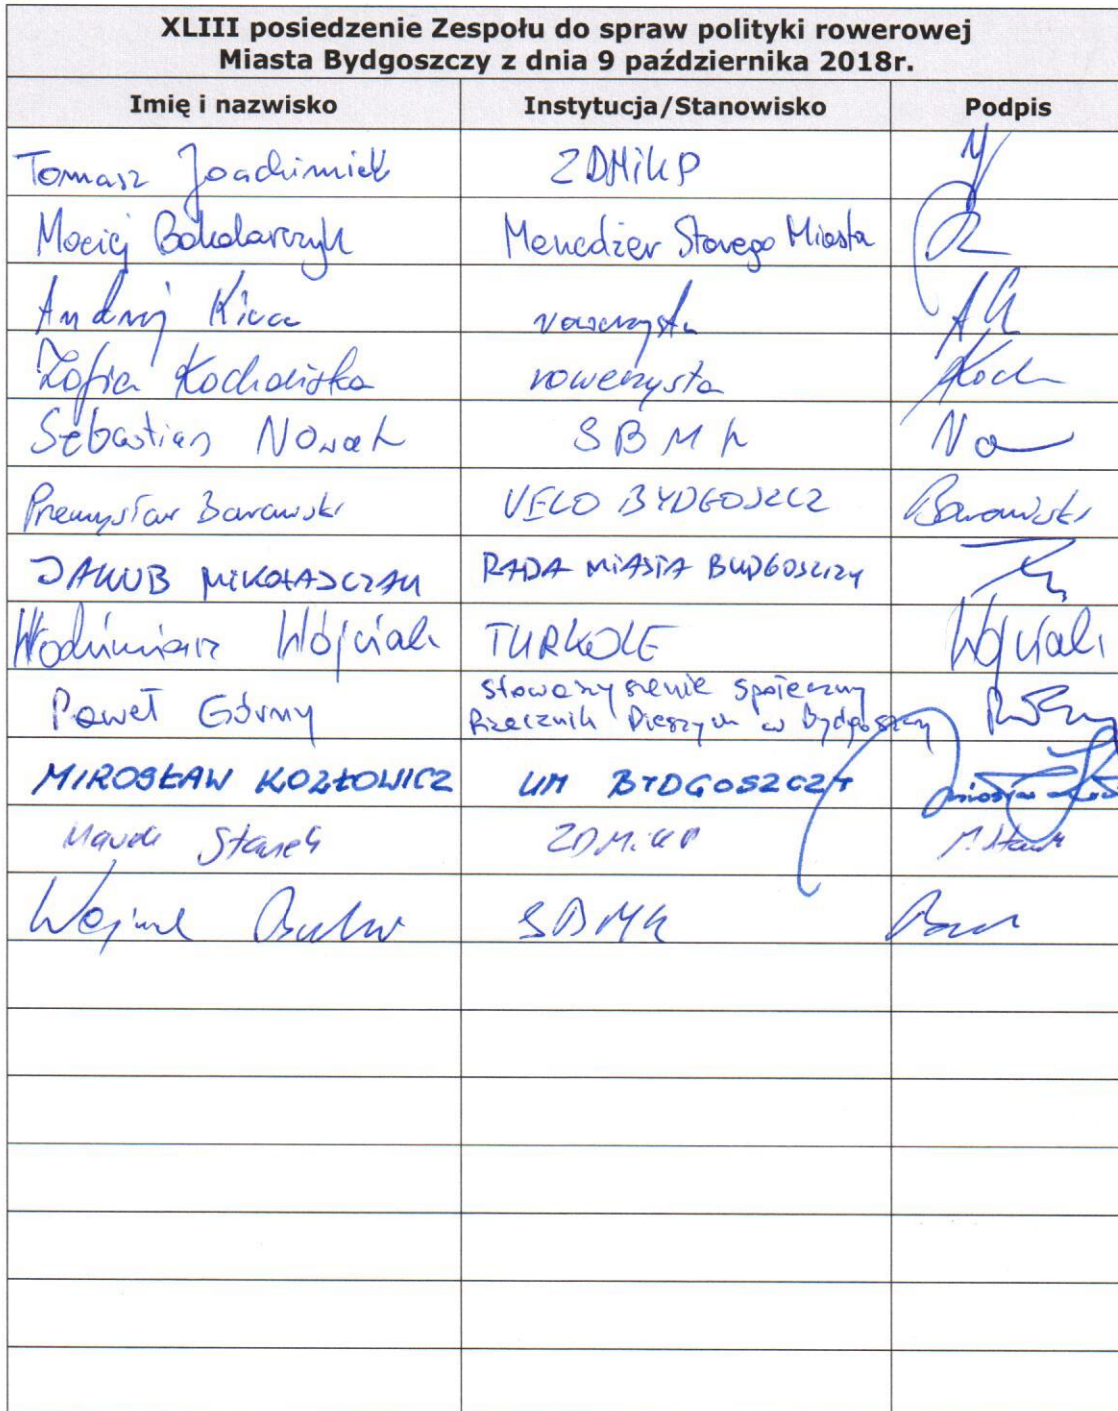 XLIII posiedzenie Zespołu do spraw polityki rowerowej
Miasta Bydgoszczy z dnia 9 października 2018r.
Imię i nazwisko Instytucja/Stanowisko Podpis
Tomasz Joachimiak ZDMiKP
Maciej Bakalarczyk Menedżer Starego Miasta
Andrzej rowerzysta
Zofia Kochańska rowerzysta Koch
Sebastian Nowak SBMK
Przemysław Barański VELO BYDGOSZCZ Barański
JAKUB MIKOŁAJCZAK RADA MIASTA BYDGOSZCZY
Włodzimierz Wójciak TURKOLE Wójciak
Paweł Górny Stowarzyszenie Społeczny
Rzecznik Pieszych w Bydgoszczy
MIROSŁAW KOZŁOWICZ UM BYDGOSZCZY
Marek Stanek ZDMiKP
SBMK